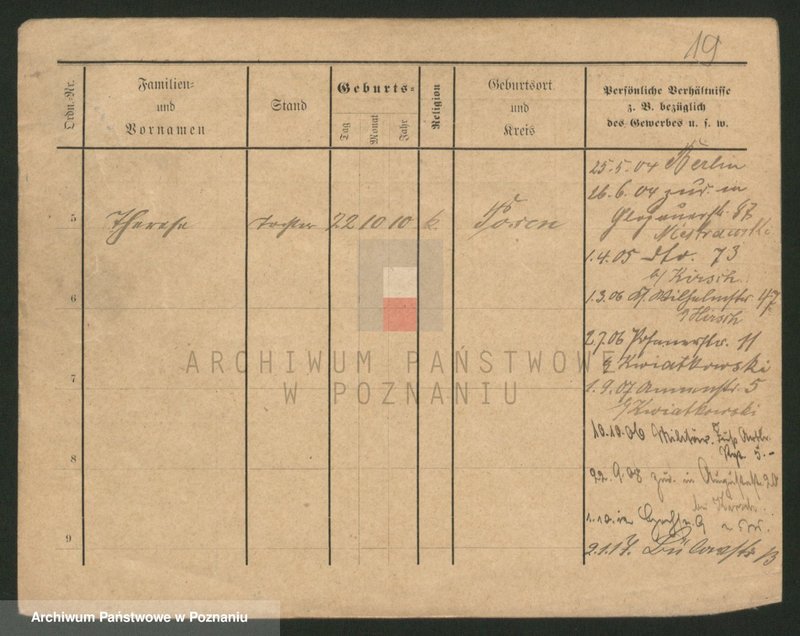 19
Ordn.-Nr.
Familien-
und
Vornamen
Stand
Geburts-
Tag
Monat
Jahr
Religion
Geburtsort
und
Kreis
Persönliche Verhältnisse
z. B. bezüglich
des Gewerbes u. s. w.
5
Therese
Tochter
22
10
10
k.
Posen
25.5.04 Berlin
26.6.04 zur. in
Glogauerstr. 87
1.4.05 dto. 73
b/ Kirsch
1.3.06 Wilhelmstr. 47
Hirsch
2.7.06 Posenerstr. 11
Kwiatkowski
1.9.07 Annenstr. 5
Kwiatkowski
10.10.06 Militär. Fuß Artl.
Rgt. 5.-
22.9.08 zur. in Auguststr. 20
bei
1.10. in
2.1.17. Bülowstr 13
6
7
8
9
ARCHIWUM PAŃSTWOWE
W POZNANIU
Archiwum Państwowe w Poznaniu